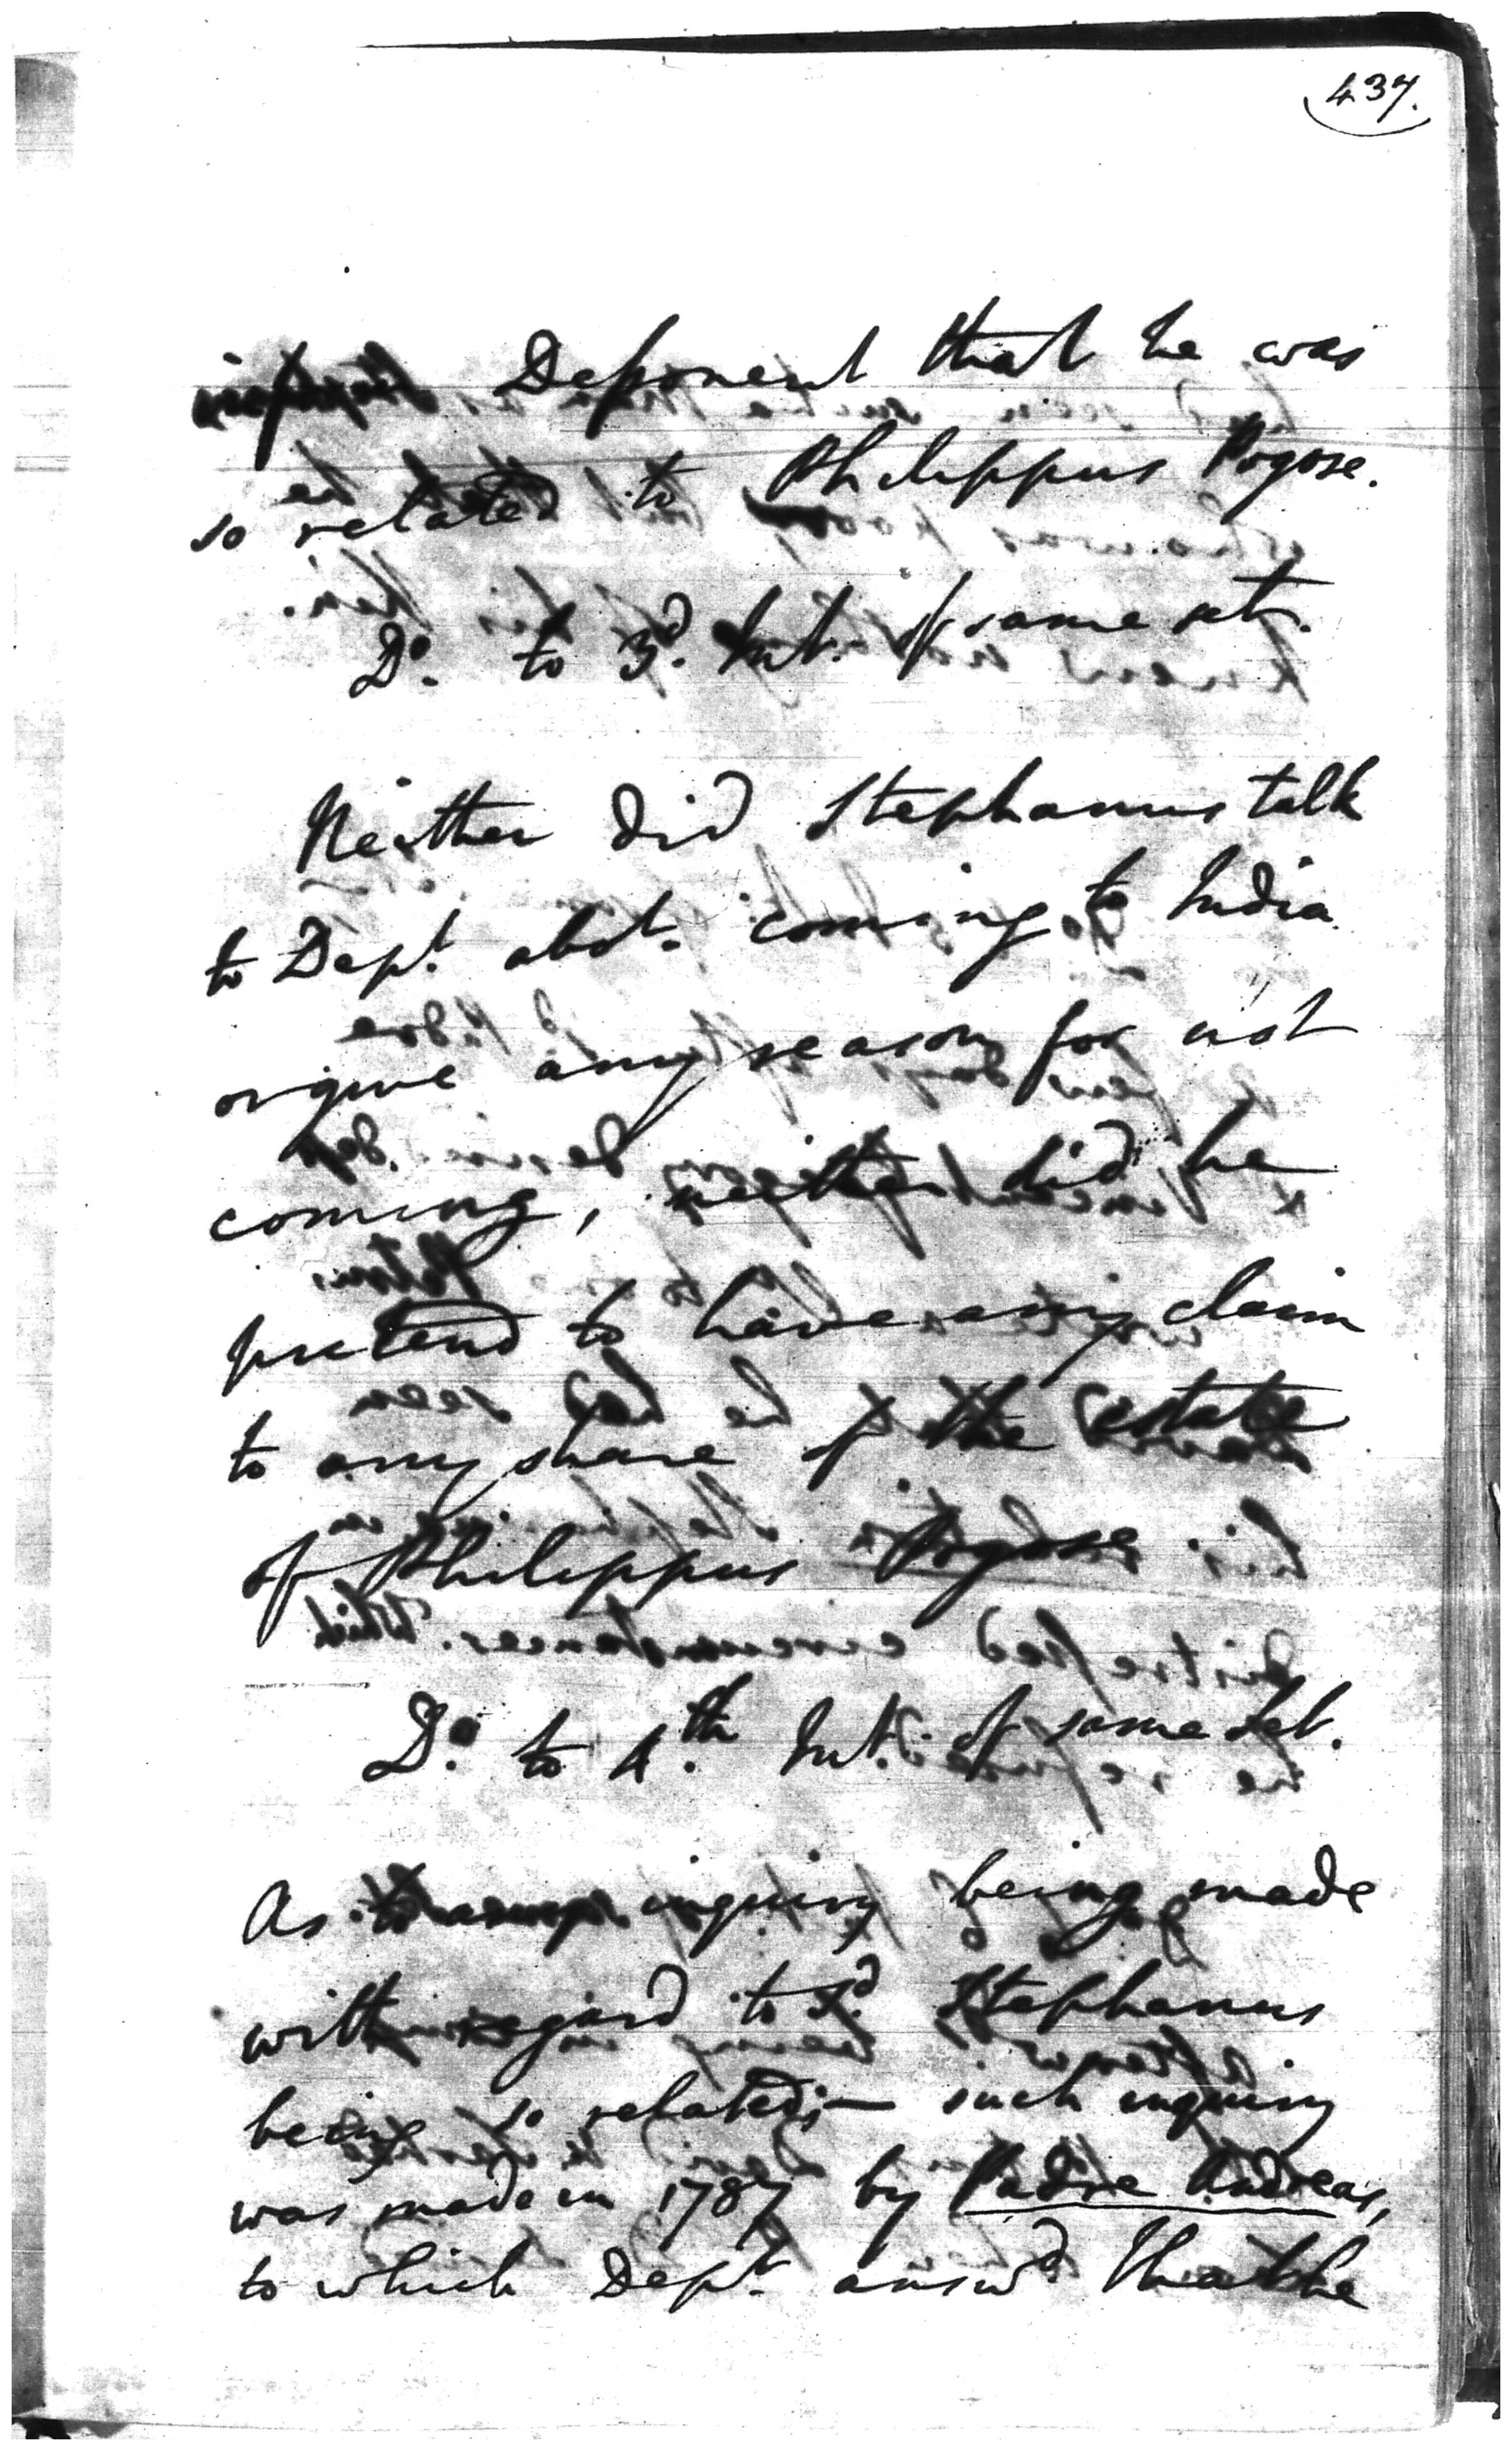 437.
Deponent that he was
so related to Philippus Pogose.
Do. to 3d. Int. of same set.
Neither did Stephanus talk
to Dept. abt. coming to India
or give any reason for not
coming, neither did he
pretend to have any claim
to any share of the estate
of Philippus Pogose
Do. to 4.th Int. of same set.
As to any inquiry being made
with regard to sd. Stephanus
being so related;— such inquiry
was made in 1787 by Padre Andreas,
to which Dept. answd. that he